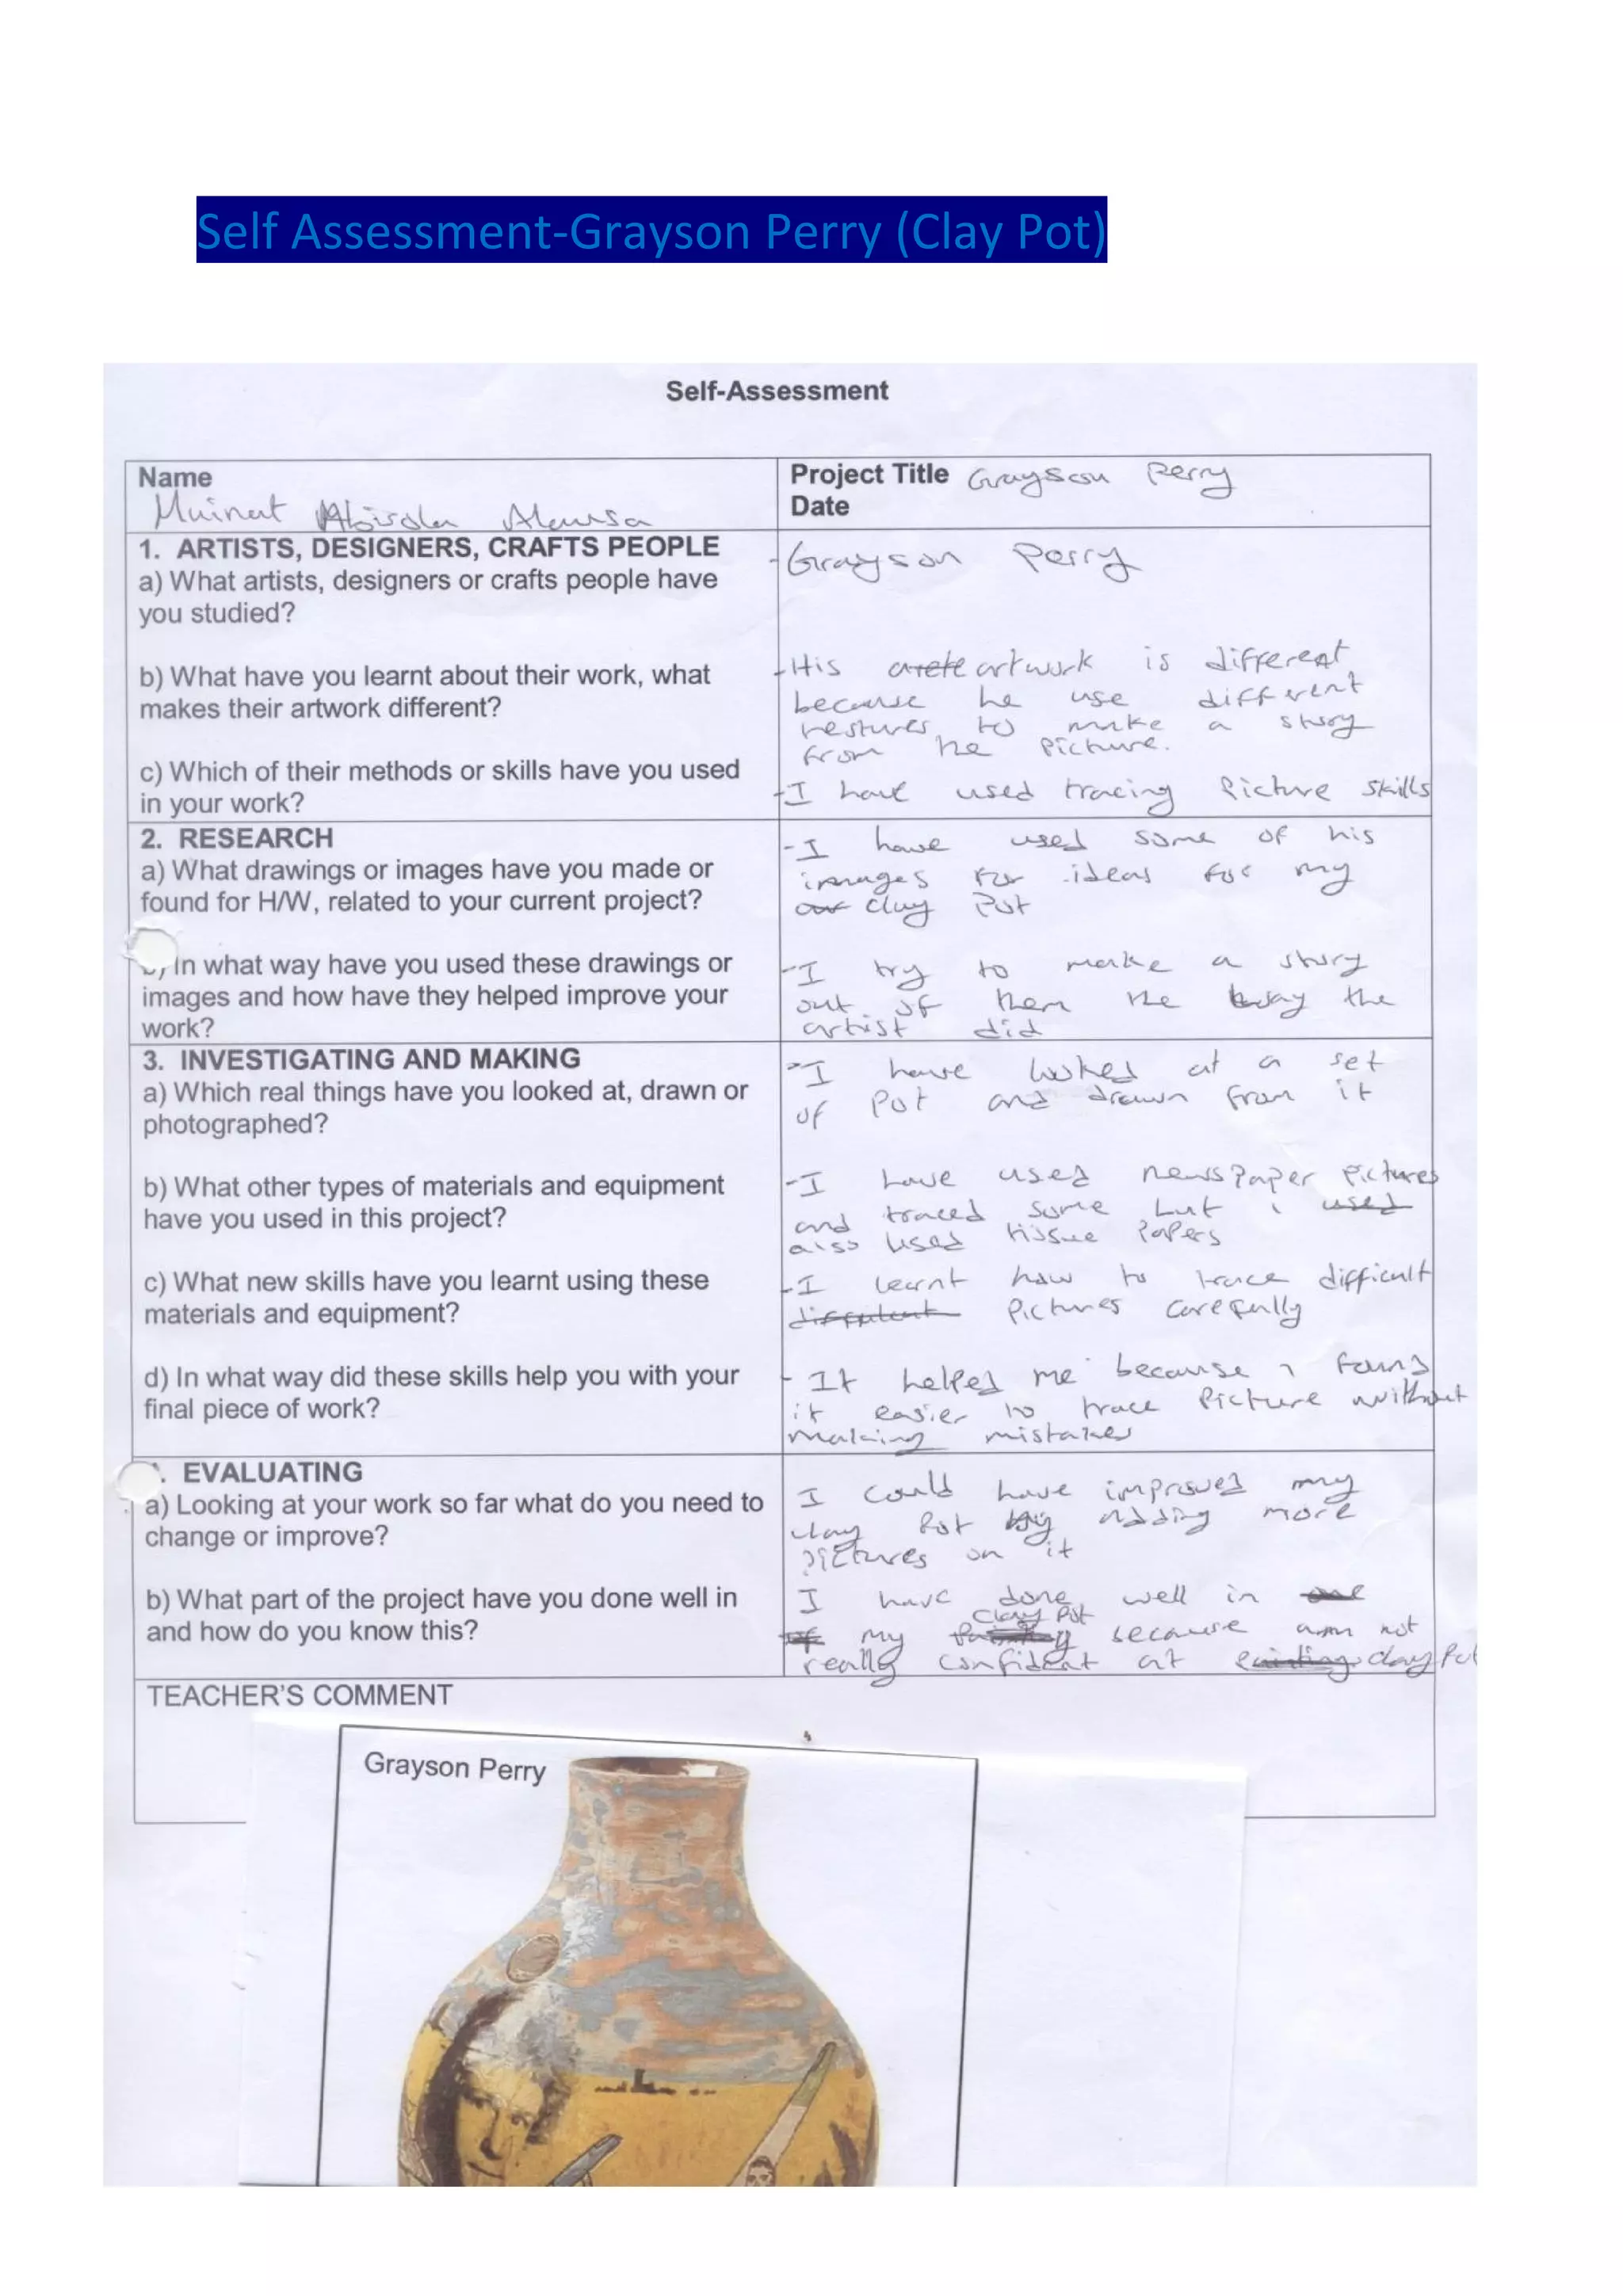 Self Assessment-Grayson Perry (Clay Pot)
Self-Assessment
Name
Muinat Abisola Alausa
Project Title Grayson Perry
Date
1. ARTISTS, DESIGNERS, CRAFTS PEOPLE
a) What artists, designers or crafts people have
you studied?
-Grayson Perry
b) What have you learnt about their work, what
makes their artwork different?
-His artwork is different
because he use different
to make a story
from he picture.
c) Which of their methods or skills have you used
in your work?
-I have used tracing Picture skills
2. RESEARCH
a) What drawings or images have you made or
found for H/W, related to your current project?
-I have used some of his
images for ideas for my
our clay Pot
In what way have you used these drawings or
images and how have they helped improve your
work?
-I try to make a story
out of them the way the
artist did
3. INVESTIGATING AND MAKING
a) Which real things have you looked at, drawn or
photographed?
-I have looked at a set
of Pot and drawn from it
b) What other types of materials and equipment
have you used in this project?
-I have used newspaper pictures
and traced some but i used
also used tissue Papers
c) What new skills have you learnt using these
materials and equipment?
-I learnt how to trace difficult
Pictures carefully
d) In what way did these skills help you with your
final piece of work?
- It helped me because i found
it easier to trace Picture without
making mistakes
EVALUATING
a) Looking at your work so far what do you need to
change or improve?
I could have improved my
clay Pot by adding more
pictures on it
b) What part of the project have you done well in
and how do you know this?
I have done well in one
of my clay Pot because am not
really confident at clay Pot
TEACHER'S COMMENT
Grayson Perry